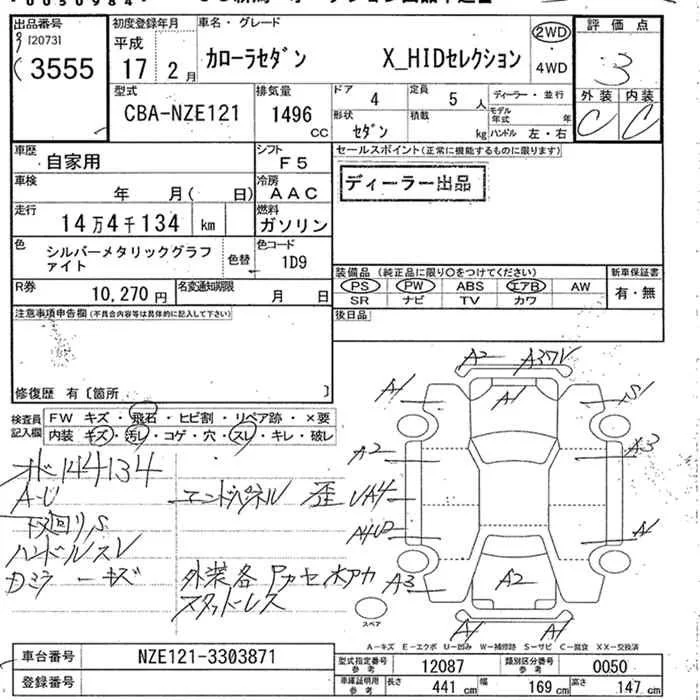 出品番号
[20731
3555
初度登録年月
平成
17年 2月
車名・グレード
カローラセダン X_HIDセレクション
2WD
4WD
評価点
3
外装 内装
C C
型式
CBA-NZE121
排気量
1496 CC
ドア 4
定員 5 人
ディーラー・並行
形状 セダン
積載 kg
モデル年式 年
ハンドル 左・右
車歴
自家用
シフト
F5
セールスポイント(正常に機能するものに限ります)
ディーラー出品
車検
年 月( 日)
冷房
AAC
走行
14万4千134 km
燃料
ガソリン
色
シルバーメタリックグラファイト
色替
色コード
1D9
R券
10,270円
名変通知期限
月 日
装備品(純正品に限り○をつけてください)
PS PW ABS エアB AW
SR ナビ TV カワ
新車保証書
有・無
後日品
注意事項申告欄(不具合内容等は具体的に記入して下さい)
修復歴 有〔箇所 〕
検査員記入欄
FW キズ・飛石・ヒビ割・リペア跡・×要
内装 キズ・汚レ・コゲ・穴・スレ・キレ・破レ
オド144134
A-U
下回りS
ハンドルスレ
エンドパネル 歪
外装各
スタッドレス
A2
A1
A1
A2
A3
A1
A3
A2
A1
A1
スペア
A-キズ E-エクボ U-凹み W-補修跡 S-サビ C-腐食 XX-交換済
車台番号
NZE121-3303871
登録番号
型式指定番号 参考
12087
類別区分番号 参考
0050
車庫証明用 参考
長さ 441 cm 幅 169 cm 高さ 147 cm